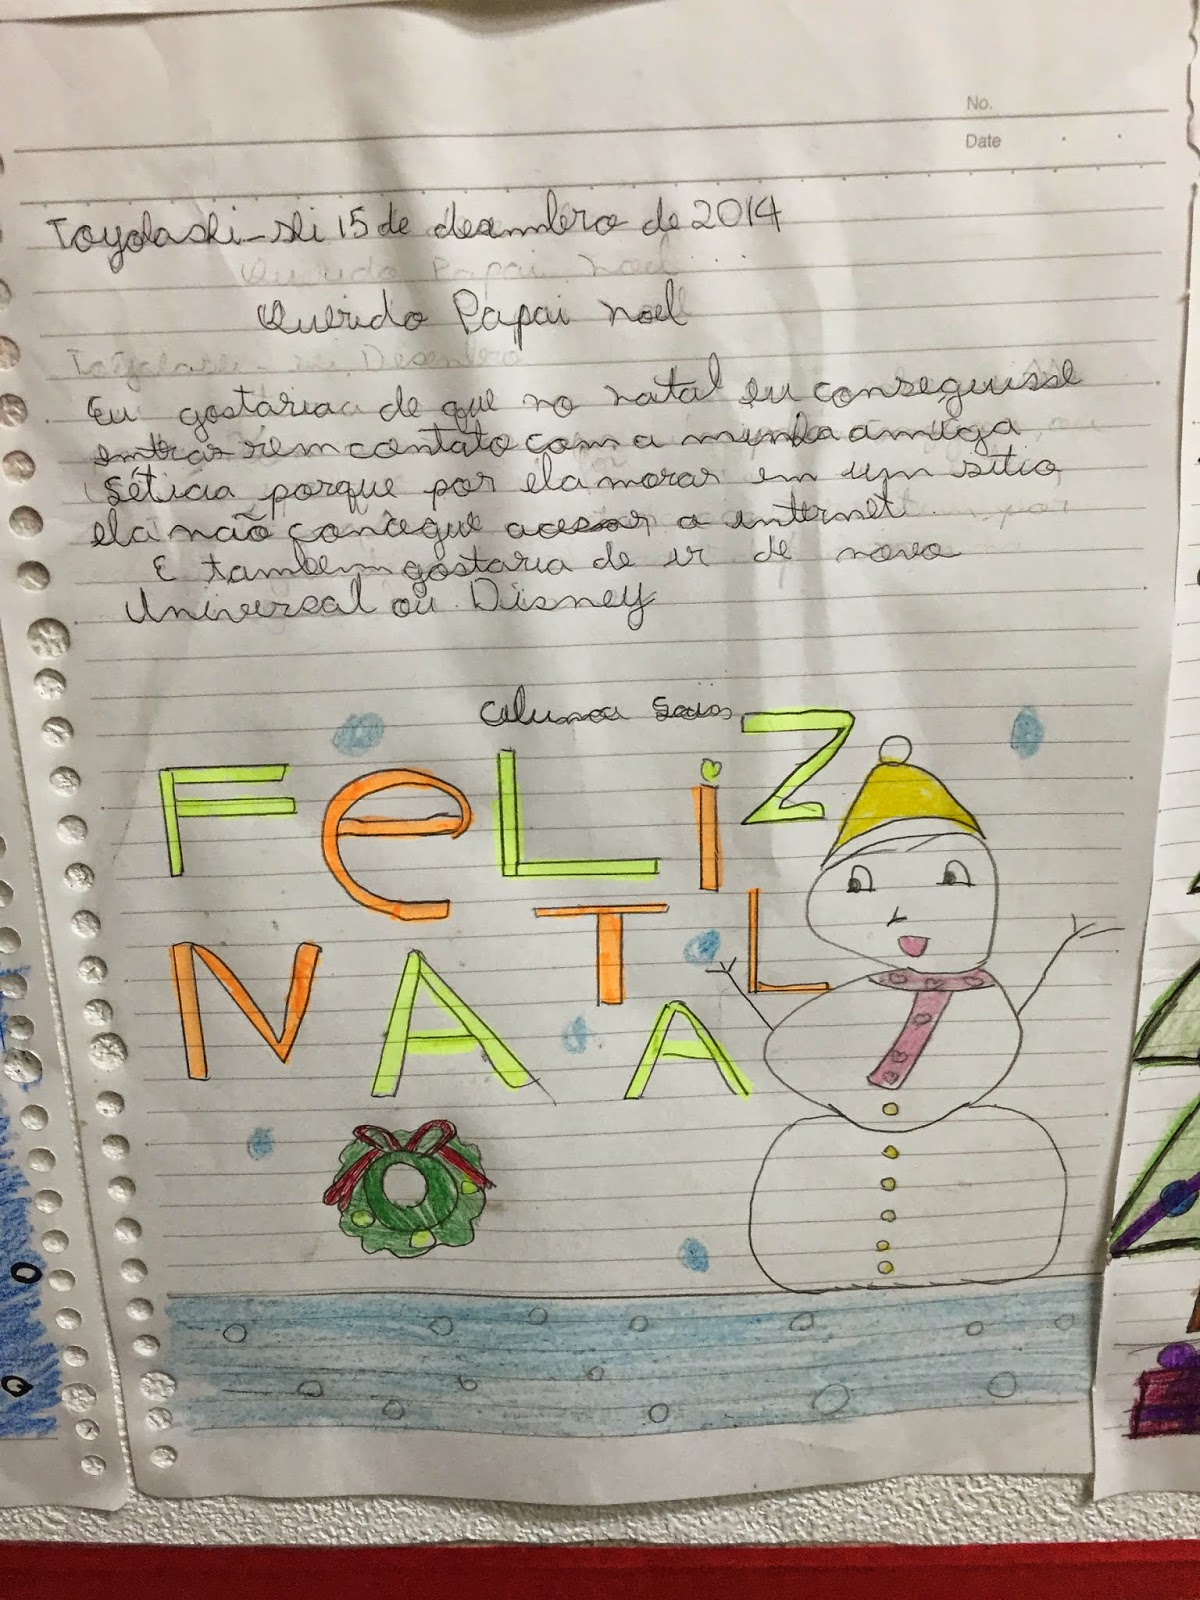 No.
Date
Toyohashi-shi 15 de dezembro de 2014
Querido Papai Noel
Querido Papai Noel
Eu gostaria de que no natal eu conseguisse
entrar em contato com a minha amiga
Létícia porque por ela morar em um sítio
ela não concegue acessar a internet.
E tambem gostaria de ir de novo
Universal ou Disney
aluna
FELIZ
NATAL